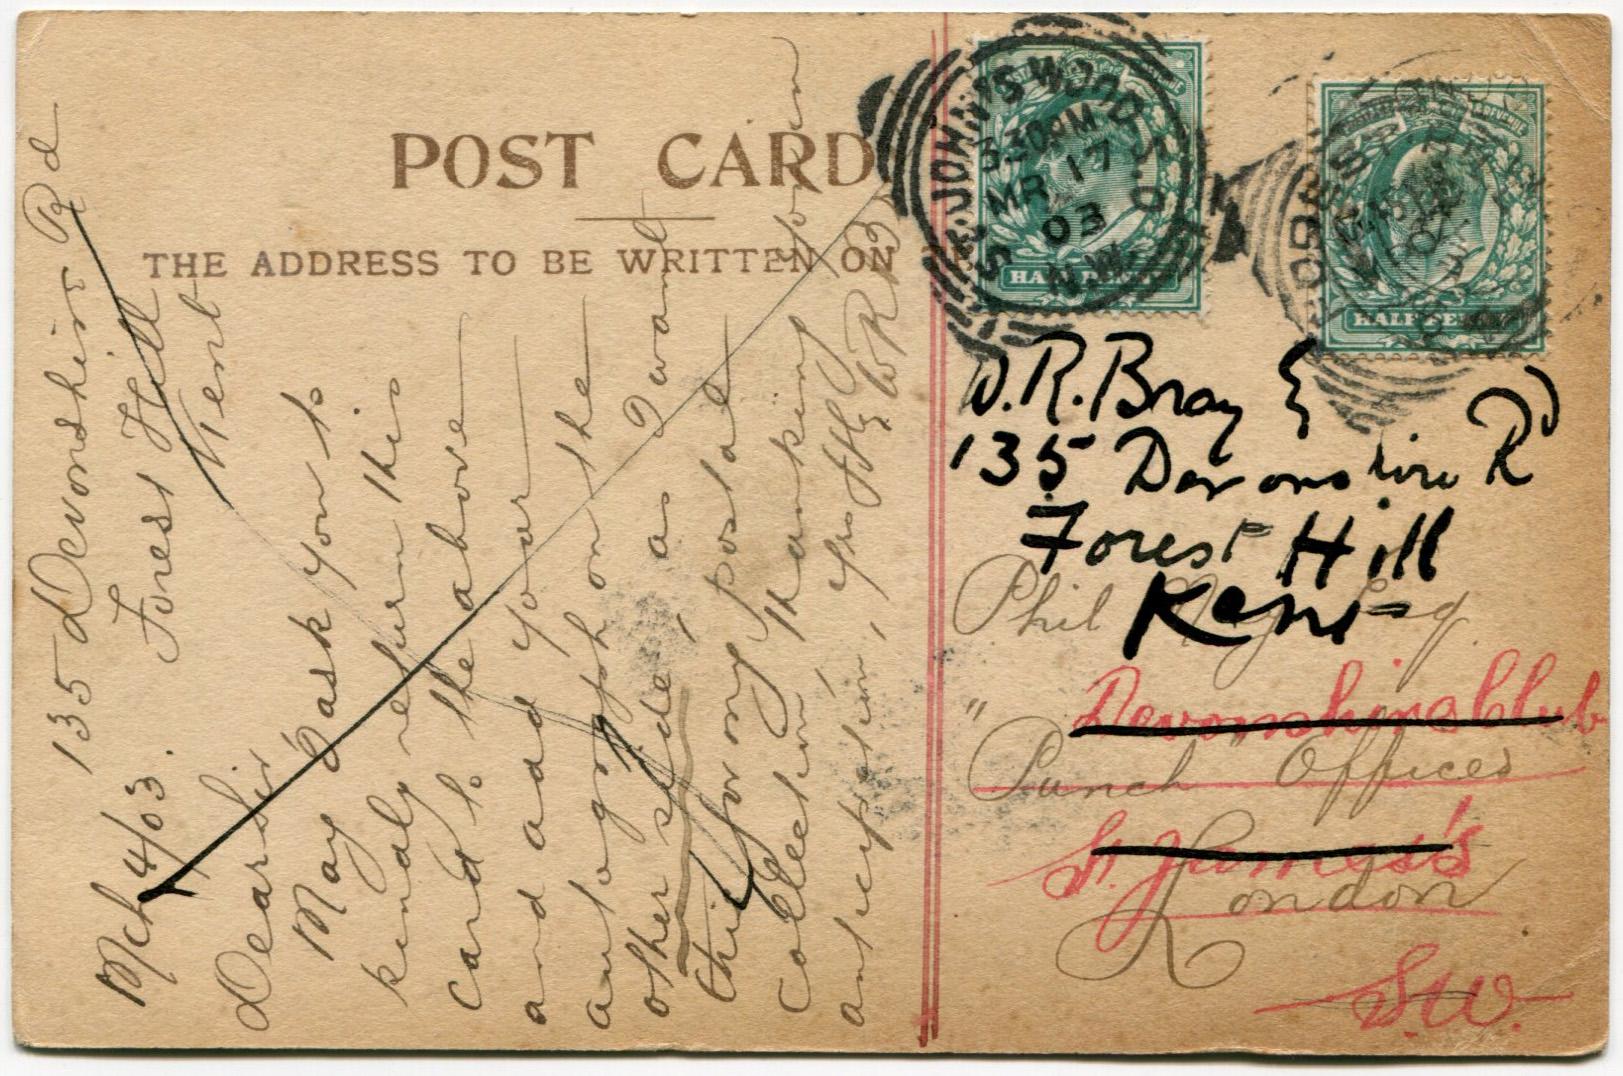 POST CARD
THE ADDRESS TO BE WRITTEN ON
135 Devonshire Rd
Forest Hill
Kent
Mch 4/03.
Dear Sir
May I ask you to
kindly return this
card to the above
and add your
autograph on the
other side, as I want
this for my postal
collection, thanking you in
anticipation, Yrs ffly W R B
ST. JOHN'S WOOD S.O.
3.30PM
MR 17
03
N.W.
HALF PENNY
FOREST HILL
HALF PENNY
W. R. Bray Esq
135 Devonshire Rd
Forest Hill
Kent
Phil May Esq.
Devonshire Club
"Punch" Offices
St. James's
London
S.W.